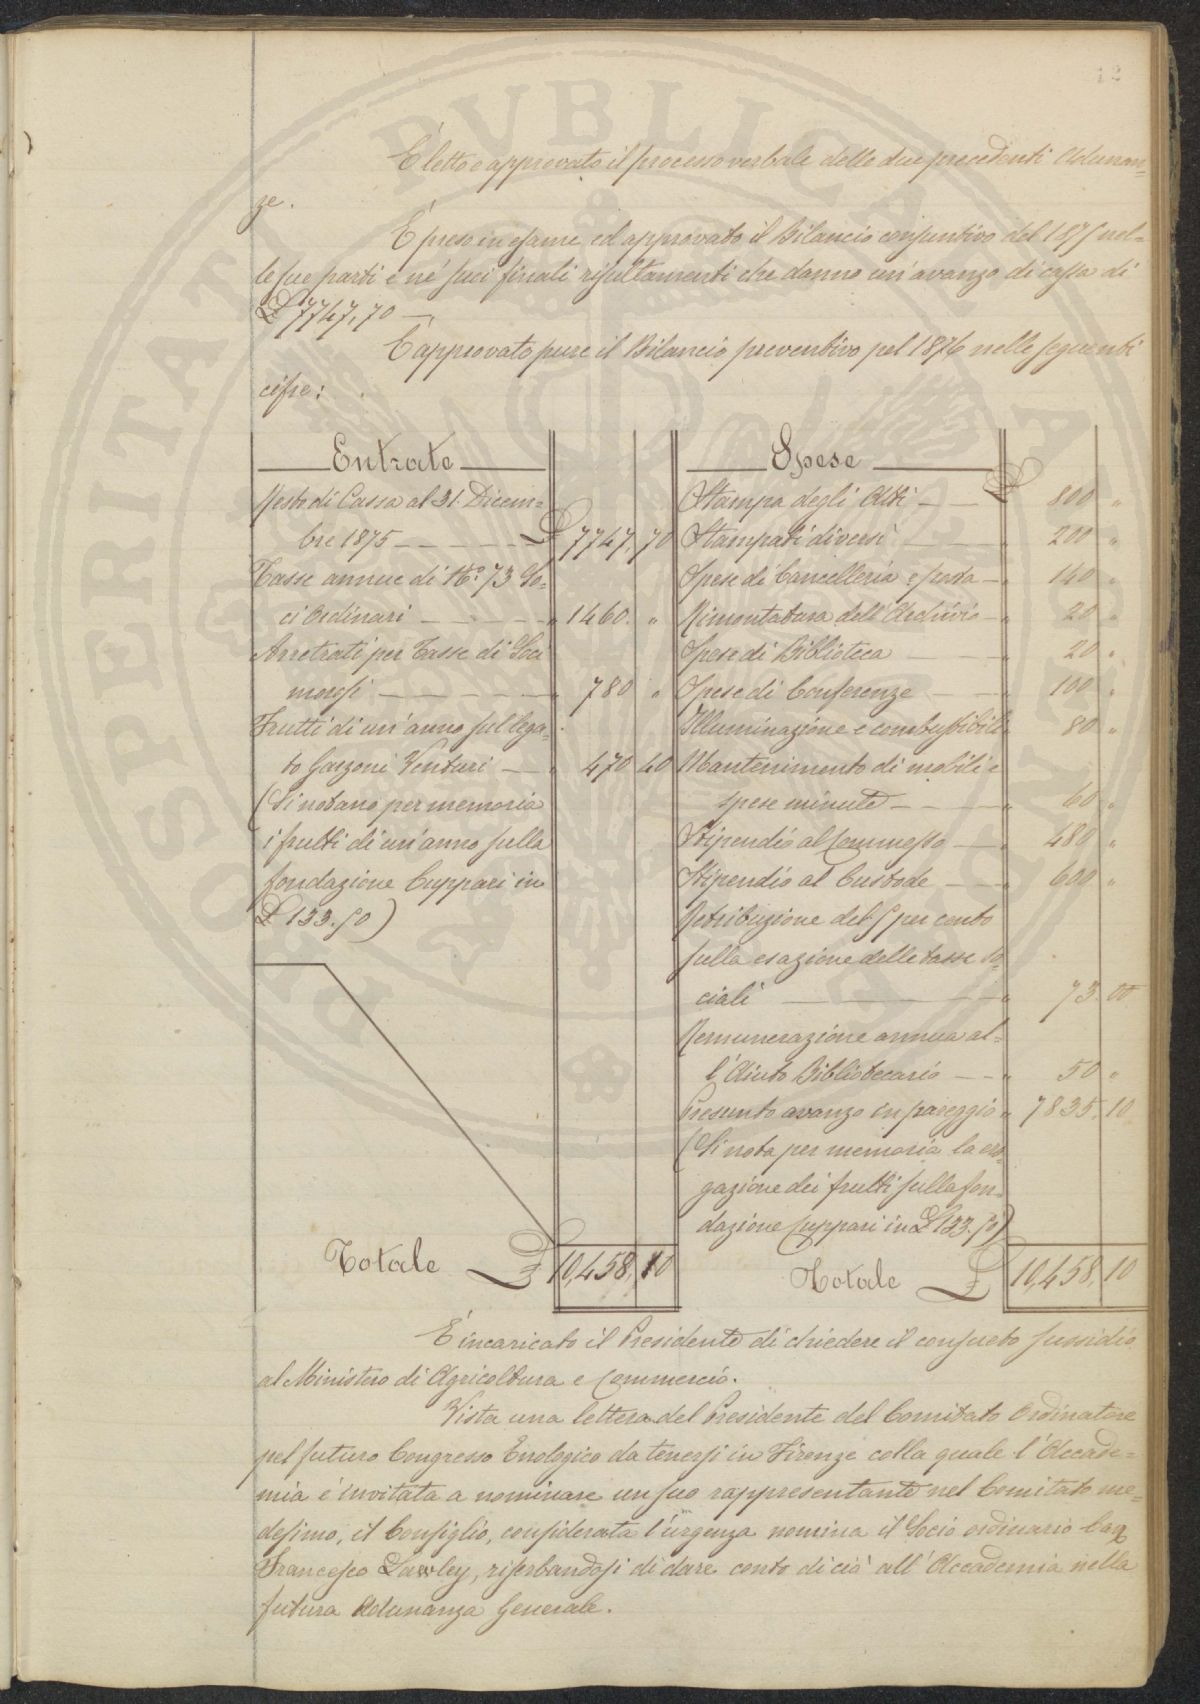 12
È letto e approvato il processo verbale delle due precedenti Adunan=
ze.
È preso in esame ed approvato il Bilancio consuntivo del 1875 nel=
le sue parti e né suoi finali risultamenti che danno un'avanzo di cassa di
£ 7747,70 —
È approvato pure il Bilancio preventivo pel 1876 nelle seguenti
cifre:
Entrate
Resto di Cassa al 31. Dicem=
bre 1875 — £ 7747,70
Tasse annue di No. 73 So=
ci Ordinari — " 1460. "
Arretrati per Tasse di Soci
morosi — " 780 "
Frutti di un'anno sul lega=
to Garzoni Venturi — " 470 40
(Si notano per memoria
i frutti di un'anno sulla
fondazione Cuppari in
£ 133.50)
Totale £ 10,458,10
Spese
Stampa degli Atti — £ 800 "
Stampati diversi — " 200 "
Spese di Cancelleria e posta — " 140 "
Rimontatura dell'Archivio — " 20 "
Spese di Biblioteca — " 20 "
Spese di Conferenze — " 100 "
Illuminazione e combustibili " 80 "
Mantenimento di mobili e
spese minute — " 60 "
Stipendio al Commesso — " 480 "
Stipendio al Custode — " 600 "
Retribuzione del 5 per cento
sulla esazione delle tasse so=
ciali — " 73. 00
Remunerazione annua al=
l'Aiuto Bibliotecario — " 50 "
Presunto avanzo in pareggio " 7835. 10
(Si nota per memoria la ero=
gazione dei frutti sulla fon=
dazione Cuppari in £ 133.50)
Totale £ 10,458,10
È incaricato il Presidente di chiedere il consueto sussidio
al Ministero di Agricoltura e Commercio.
Vista una lettera del Presidente del Comitato Ordinatore
pel futuro Congresso Enologico da tenersi in Firenze colla quale l'Accade=
mia è invitata a nominare un suo rappresentante nel Comitato me=
desimo, il Consiglio, considerata l'urgenza nomina il Socio ordinario Cav.
Francesco Lawley, riserbandosi di dare conto di ciò all'Accademia nella
futura Adunanza Generale.
PROSPERITATI PVBLICAE AVGENDAE